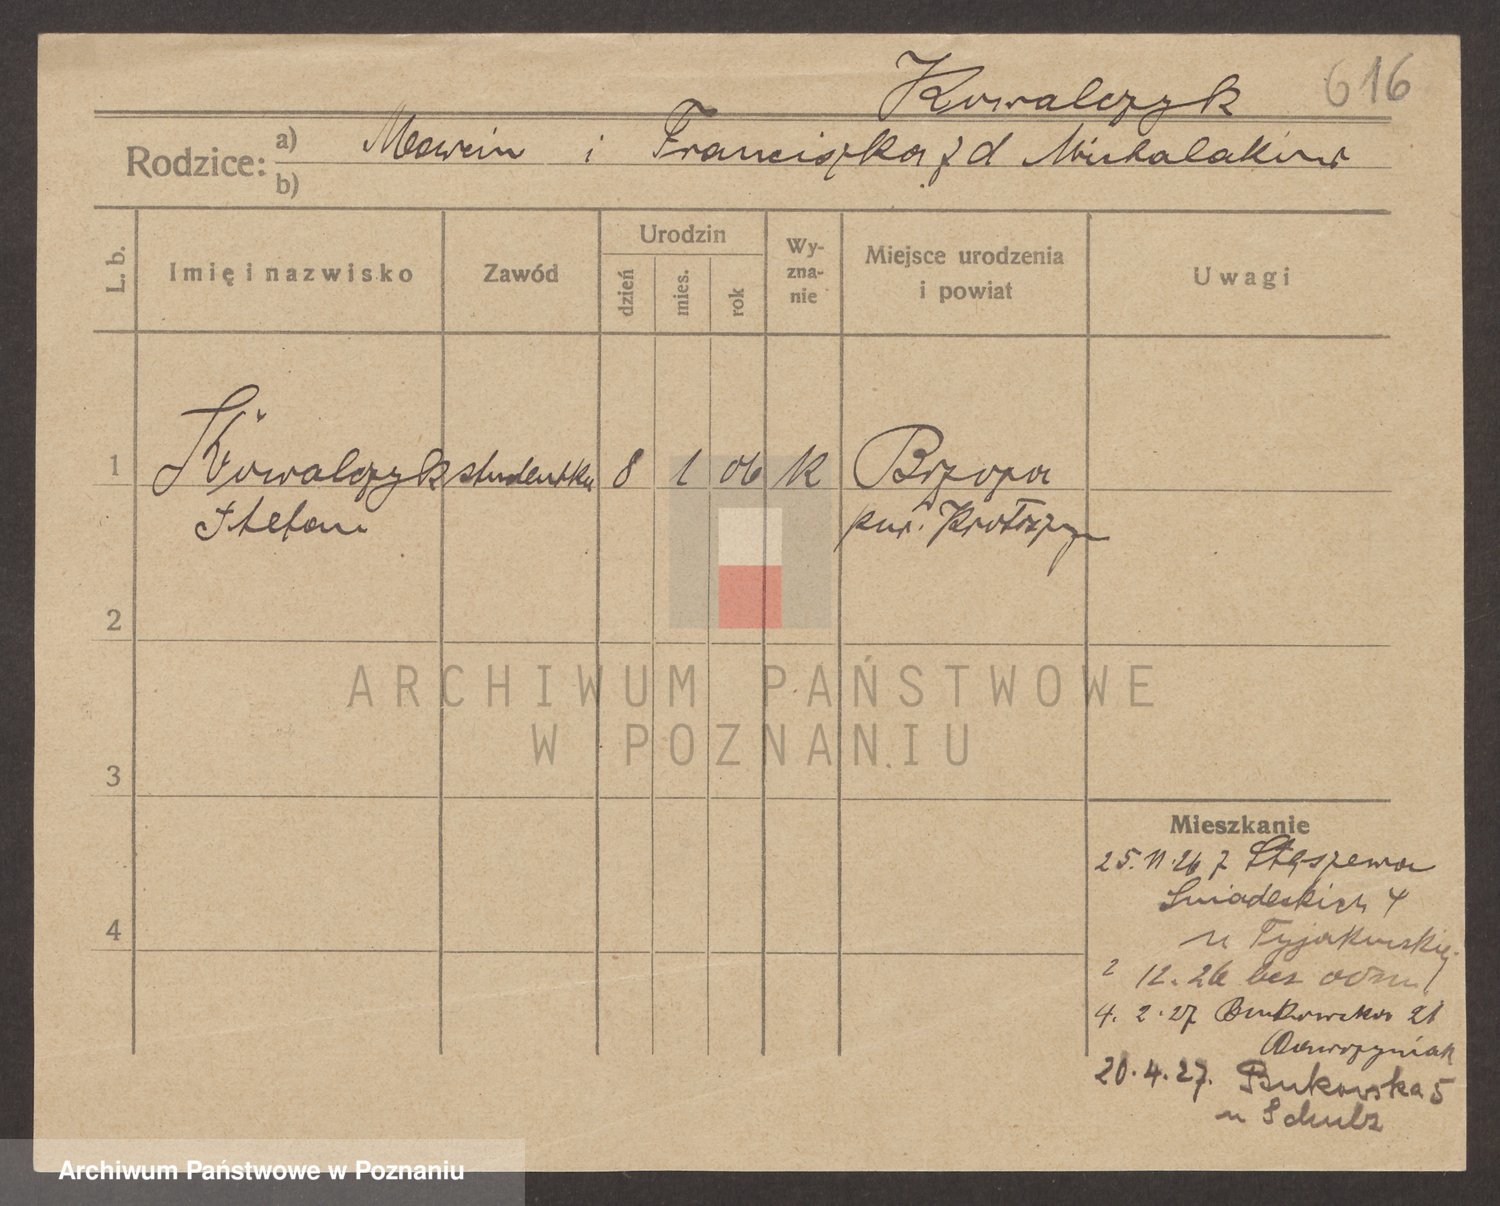 Kowalczyk 616
Rodzice: a) Marcin i Franciszka z d Michalaków
b)
L. b.
Imię i nazwisko
Zawód
Urodzin
dzień
mies.
rok
Wy-
zna-
nie
Miejsce urodzenia
i powiat
Uwagi
1 Kowalczyk studentka 8 1 06 k Brzoza
Stefan pow. Krotoszyn
2
3
4
ARCHIWUM PAŃSTWOWE
W POZNANIU
Mieszkanie
25.11.26 z Stęszewa
Śniadeckich 4
u
2 12.26 bez odm.
4. 2.27 Bukowska 21
20.4.27. Bukowska 5
u Schulz
Archiwum Państwowe w Poznaniu